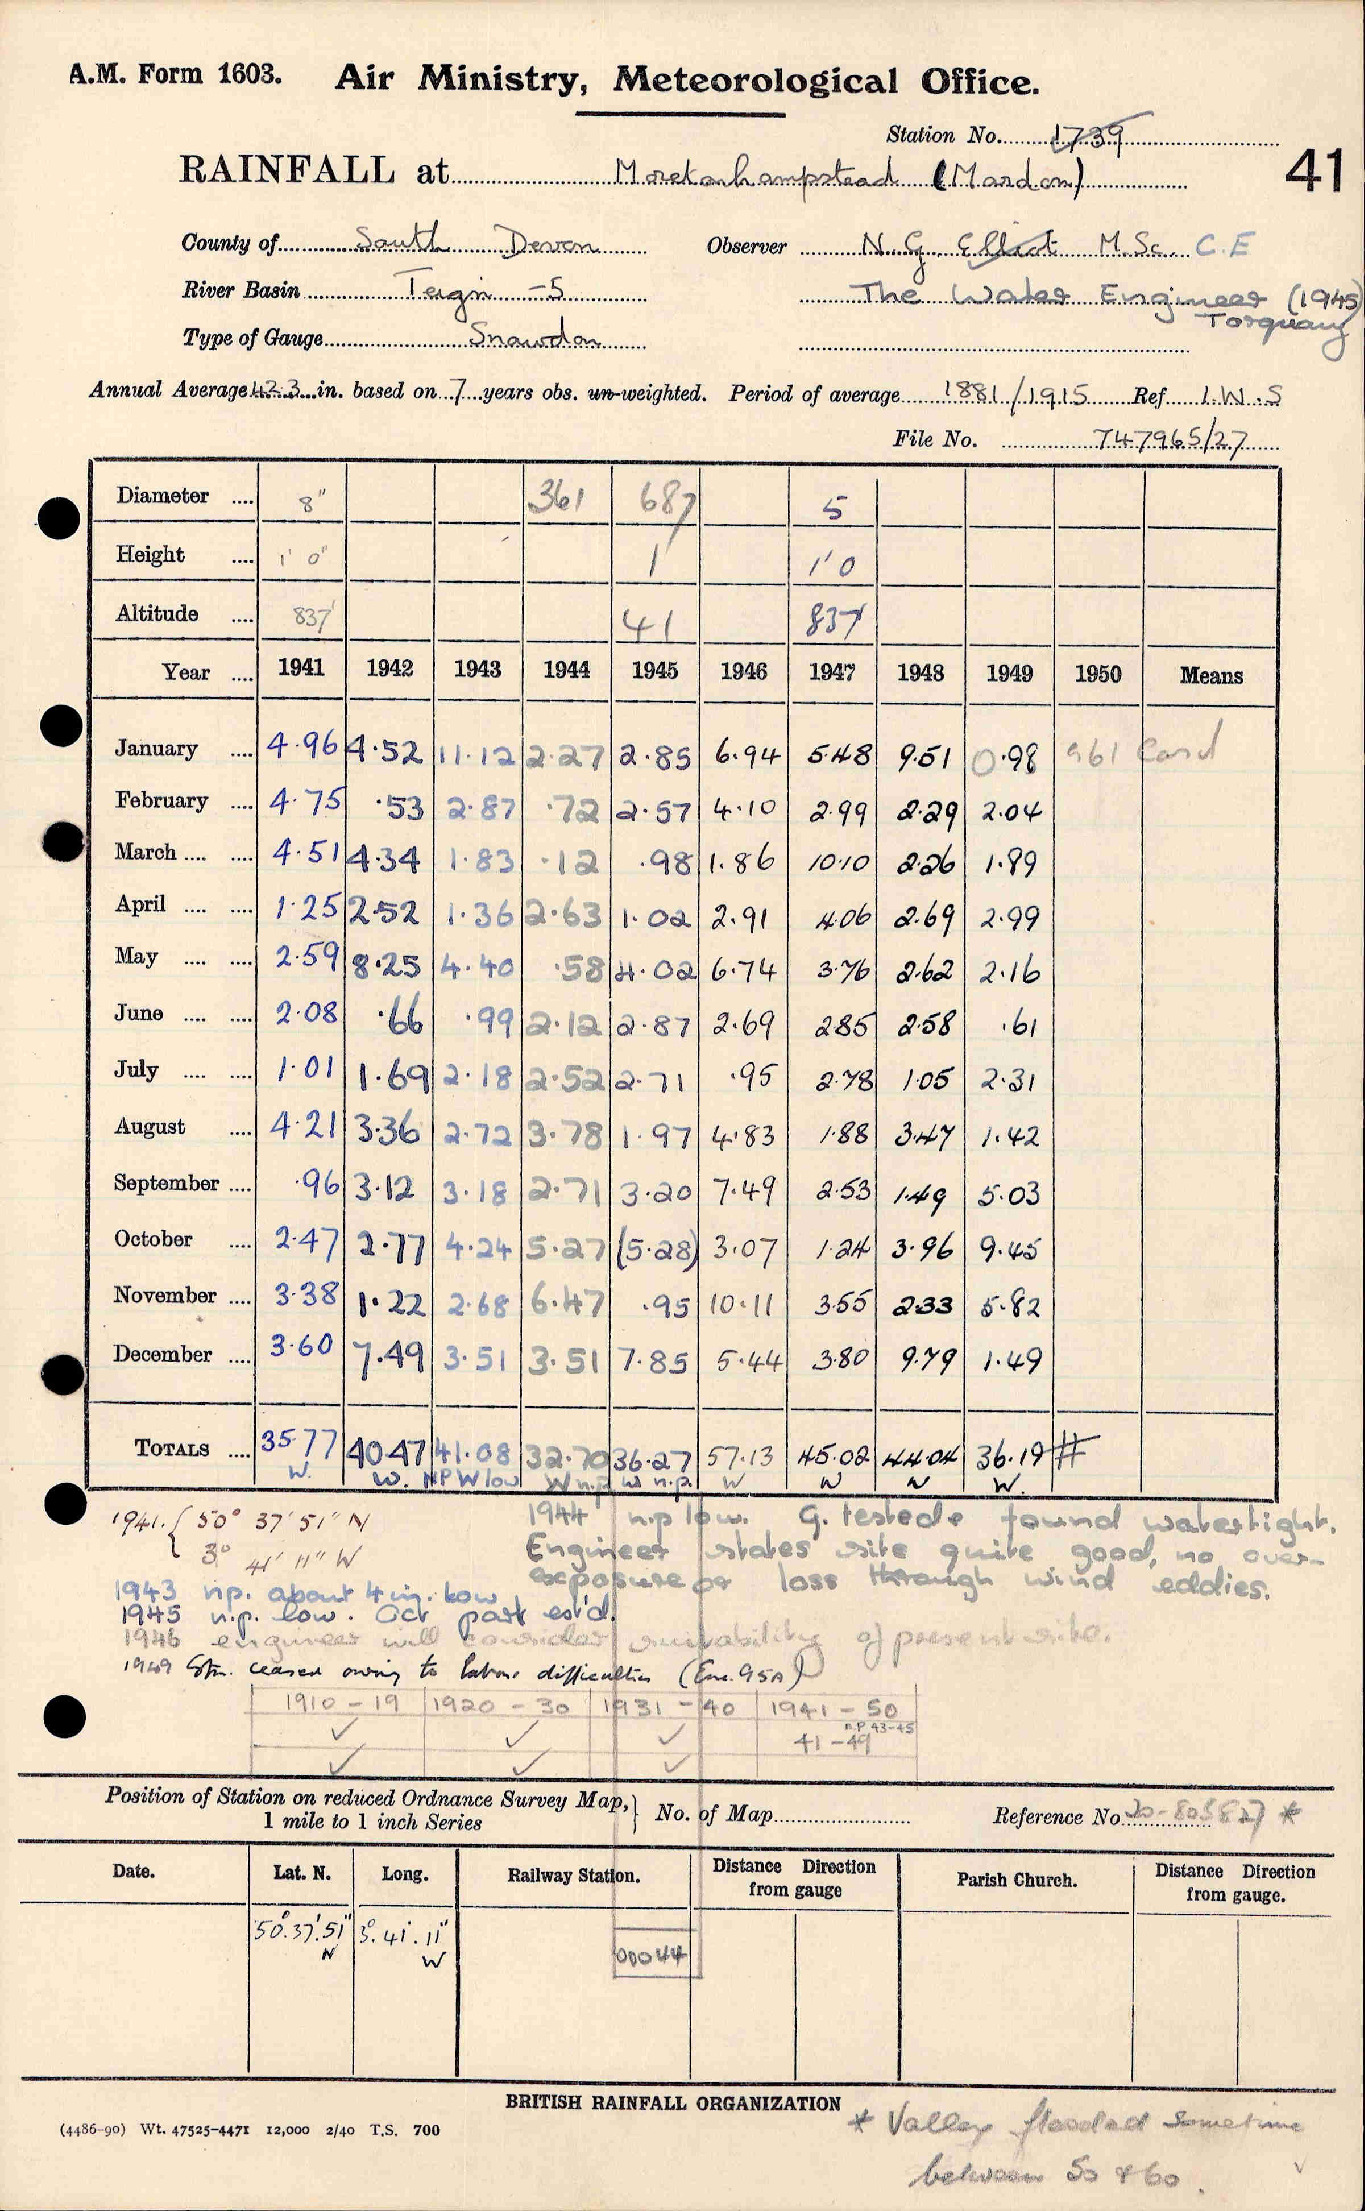 A.M. Form 1603. Air Ministry, Meteorological Office.
Station No. 1739
41
RAINFALL at Moretonhampstead (Mardon)
County of South Devon Observer N. G. Elliot M.Sc. C.E
River Basin Teign -5 The Water Engineer (1945)
Torquay
Type of Gauge Snowdon
Annual Average 42.3 in. based on 7 years obs. un-weighted. Period of average 1881/1915 Ref I.W.S
File No. 747965/27
Diameter .... 8" 361 687 5
Height .... 1' 0" 1 1' 0
Altitude .... 837' 41 837'
Year .... 1941 1942 1943 1944 1945 1946 1947 1948 1949 1950 Means
January .... 4.96 4.52 11.12 2.27 2.85 6.94 5.48 9.51 0.98 961 Card
February .... 4.75 .53 2.87 .72 2.57 4.10 2.99 2.29 2.04
March .... .... 4.51 4.34 1.83 .12 .98 1.86 10.10 2.26 1.89
April .... .... 1.25 2.52 1.36 2.63 1.02 2.91 4.06 2.69 2.99
May .... .... 2.59 8.25 4.40 .58 4.02 6.74 3.76 2.62 2.16
June .... .... 2.08 .66 .99 2.12 2.87 2.69 2.85 2.58 .61
July .... .... 1.01 1.69 2.18 2.52 2.71 .95 2.78 1.05 2.31
August .... 4.21 3.36 2.72 3.78 1.97 4.83 1.88 3.47 1.42
September .... .96 3.12 3.18 2.71 3.20 7.49 2.53 1.49 5.03
October .... 2.47 2.77 4.24 5.27 (5.28) 3.07 1.24 3.96 9.45
November .... 3.38 1.22 2.68 6.47 .95 10.11 3.55 2.33 5.82
December .... 3.60 7.49 3.51 3.51 7.85 5.44 3.80 9.79 1.49
TOTALS .... 35.77 40.47 41.08 32.70 36.27 57.13 45.02 44.04 36.19 #
W. W. NP W low W n.p. W n.p. W W W W.
1941. { 50° 37' 51" N
3° 41' 11" W
1944 n.p low. G. tested & found watertight.
Engineer states site quite good, no over-
exposure or loss through wind eddies.
1943 np. about 4 in. low
1945 n.p. low. Oct part est'd.
1946 engineer will consider suitability of present site.
1949 Stn. ceased owing to labour difficulties (Enc. 95A)
1910 - 19 1920 - 30 1931 - 40 1941 - 50
✓ ✓ ✓ n.P 43-45
41 - 49
✓ ✓ ✓
Position of Station on reduced Ordnance Survey Map, } No. of Map Reference No 20-803827 *
1 mile to 1 inch Series
Date. Lat. N. Long. Railway Station. Distance Direction from gauge Parish Church. Distance Direction from gauge.
50°.37'.51" N 3°.41'.11" W
00044
BRITISH RAINFALL ORGANIZATION
(4486-90) Wt. 47525-4471 12,000 2/40 T.S. 700
* Valley flooded sometime
between 50 & 60.